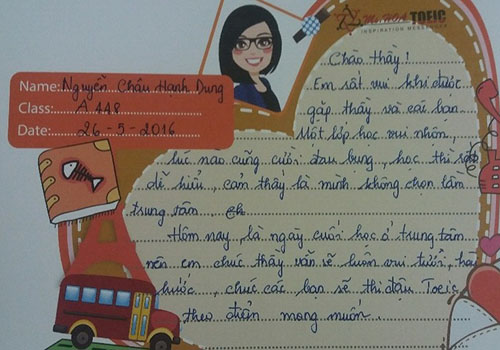 Ms HOA TOEIC
INSPIRATION MESSENGER
Chào thầy!
Name: Nguyễn Châu Hạnh Dung
Class: A 448
Date: 26-5-2016
Em rất vui khi được
gặp thầy và các bạn
Một lớp học vui nhộn,
lúc nào cũng cười đau bụng, học thì rất
dễ hiểu, cảm thấy là mình không chọn lầm
trung tâm,
Hôm nay, là ngày cuối học ở trung tâm
nên em chúc thầy vẫn sẽ luôn vui tươi, hài
hước, chúc các bạn sẽ thi đậu Toeic
theo điểm mong muốn.